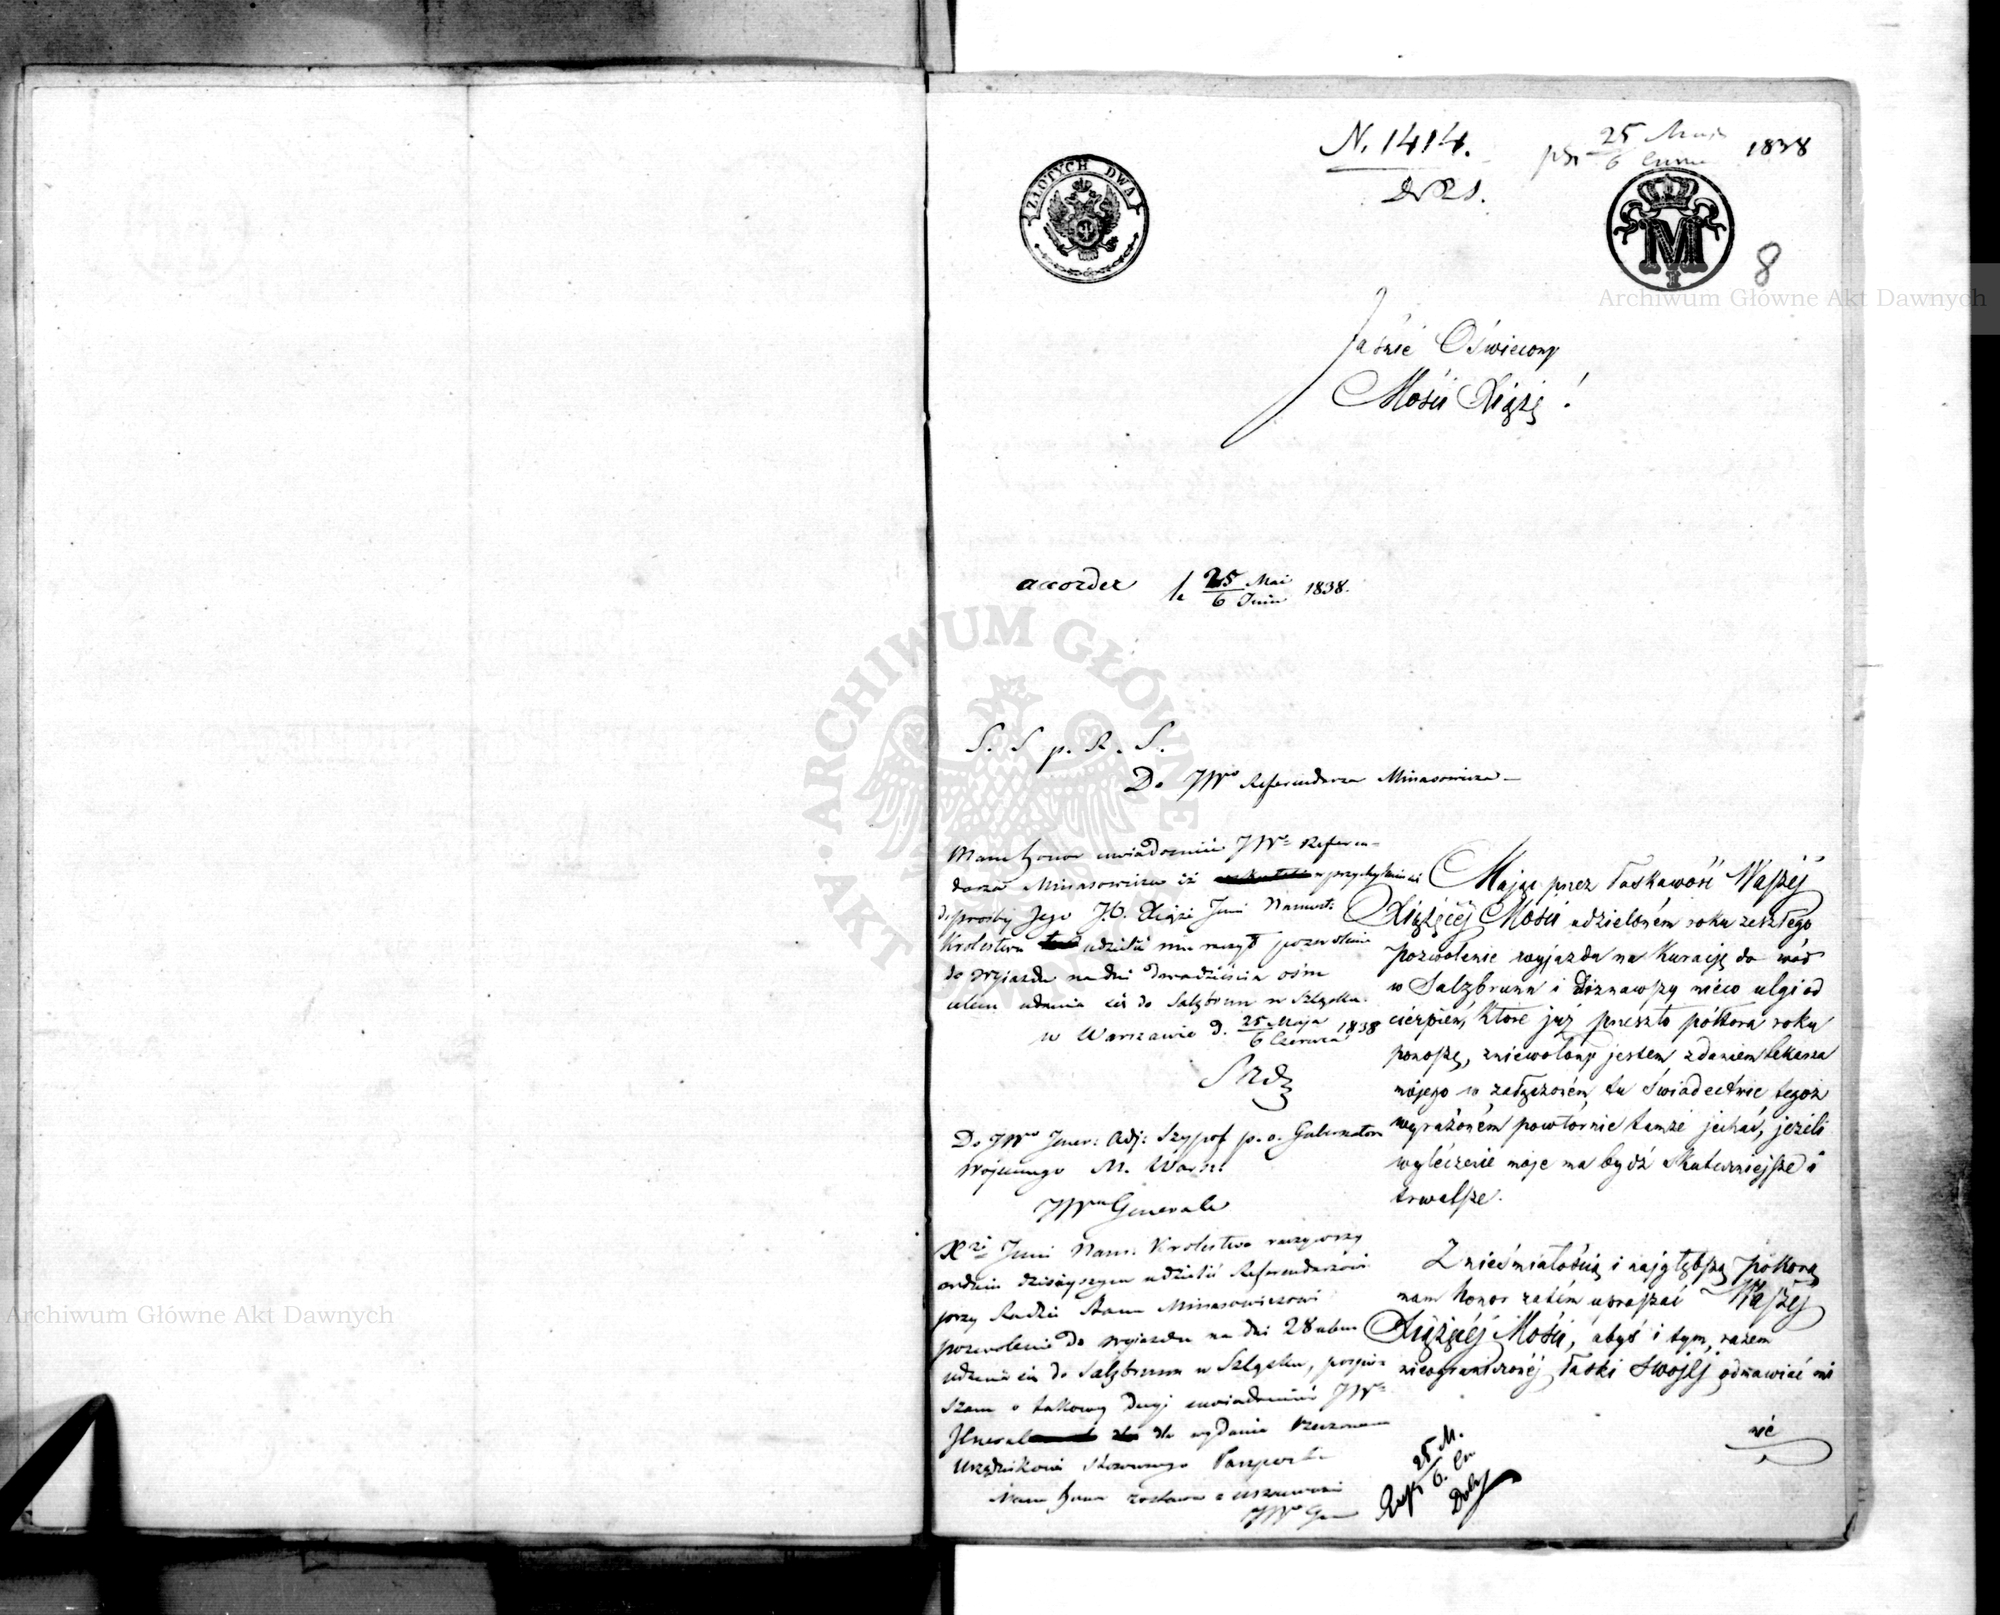 N. 1414.
25 Maja
6 Czerw 1838
ZŁOTYCH DWA
M
8
Jaśnie Oświecony
Mości Xiąże!
accorder le 25 Mai 1838.
6 Juin
S. S p. R. S.
Do JWo Referendarza Minasowicza
Mam honor uwiadomić JWo Referen-
darza Minasowicza iż przychylając się
do prośby Jego J.O. Xiąże Jmć Namiest:
Królestwa udzielić mu raczył pozwolenie
do wyjazdu na dni dwadzieścia ośm
celem udania się do Salzbrun w Szląsku.
w Warszawie d. 25 Maja 1838
6 Czerwca
Do JWo Jener: Adj: Szypof p. o. Gubernatora
Wojennego M. Warsz:
JWny Generale
Xże Jmć Nams: Królestwa raczywszy
w dniu dzisiejszym udzielić Referendarzowi
przy Radzie Stanu Minasowiczowi
pozwolenie do wyjazdu na dni 28 celem
udania się do Salzbrunn w Szląsku, pospie-
szam o takowej Decyzji uwiadomić JWo
Jenerała dla wydania rzeczonemu
Urzędnikowi stosownego Paszportu
Mam honor zostawać z uszanowaniem
JWo Gen
Mając przez łaskawość Waszéj
Xiążęcéj Mości udzieloném roku zeszłego
pozwolenie wyjazdu na Kuracją do wód
w Salzbrunn i doznawszy nieco ulgi od
cierpień, które już przeszło półtora roku
ponoszę, zniewolony jestem zdaniem lekarza
mojego w załączoném tu świadectwie tegoż
wyrażoném powtórnie tamże jechać, jeżeli
wyléczenie moje ma bydź skuteczniejsze i
trwalsze.
Z nieśmiałością i najgłębszą pokorą
mam honor zatém upraszać Waszéj
Xiążęcéj Mości, abyś i tym, razem
nieograniczonéj łaski swojéj odmawiać mi
nié
25 M.
6. Cz
Archiwum Główne Akt Dawnych
Archiwum Główne Akt Dawnych
ARCHIWUM GŁÓWNE AKT